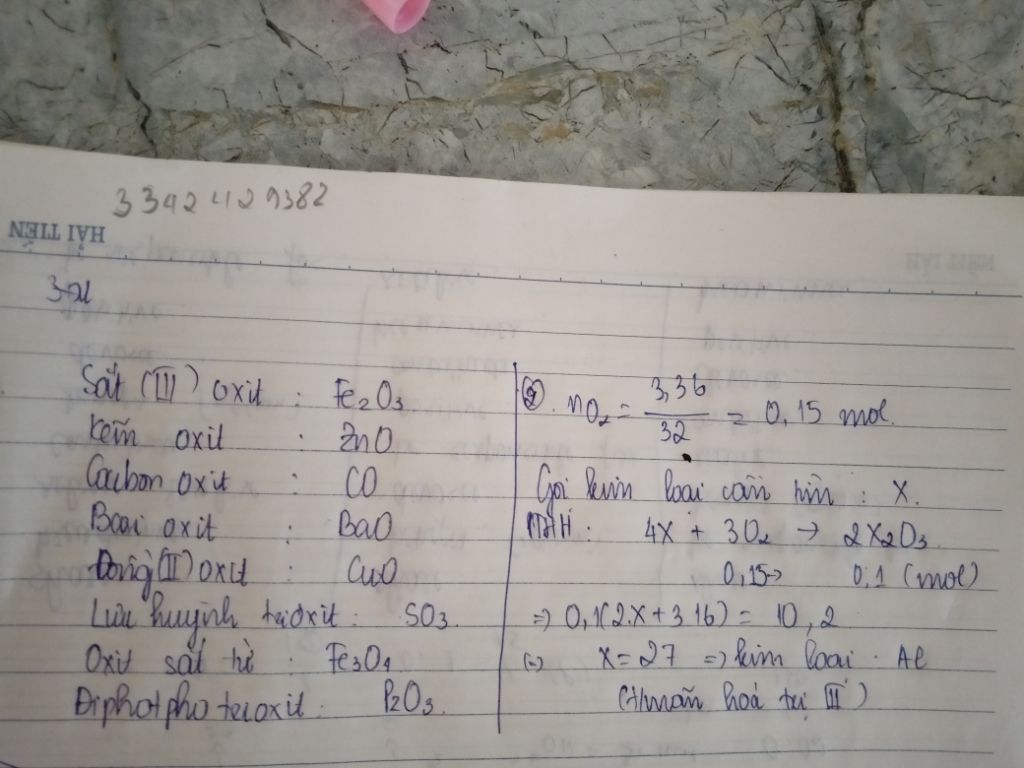 33424129382
HẢI TIẾN
Sắt (III) oxit : Fe2O3
Kẽm oxit : ZnO
Cacbon oxit : CO
Bari oxit : BaO
Đồng(II) oxit : CuO
Lưu huỳnh trioxit : SO3.
Oxit sắt từ : Fe3O4
Điphotpho trioxit : P2O3.
②. nO2 = 3,36/32 = 0,15 mol.
Gọi kim loại cần tìm : X.
PTHH : 4X + 3O2 → 2X2O3.
0,15→ 0,1 (mol)
⇒ 0,1(2.X + 3.16) = 10,2
(=) X = 27 ⇒ kim loại : Al
(t/mãn hoá trị III)